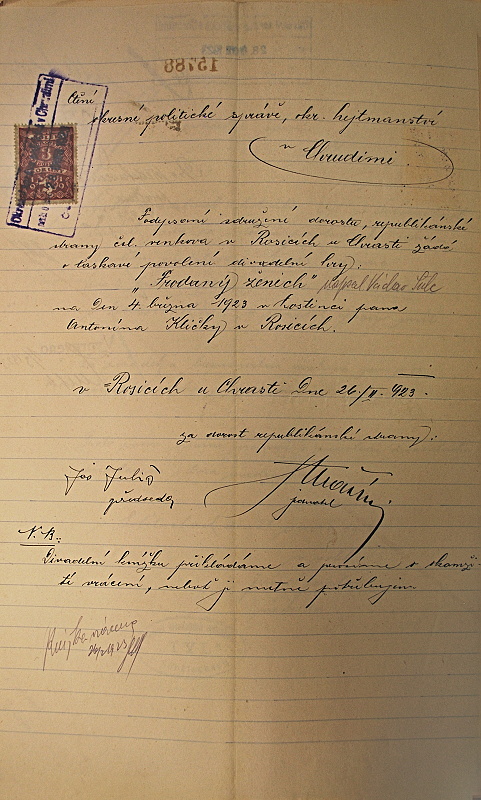 15788
Ctěné
okresní politické správě, okr. hejtmanství
v Chrudimi
Podepsaní sdružení dorostu, republikánské
strany čsl. venkova v Rosicích u Chrasti žádá
o laskavé povolení divadelní hry:
„Prodaný ženich" sepsal Václav Šulc
na den 4. března 1923 v hostinci pana
Antonína Kličky v Rosicích.
v Rosicích u Chrasti dne 26./II. 923.
za dorost republikánské strany:
Jos
předseda jednatel
N.B.:
Divadelní knížku přikládáme a prosíme o okamži-
té vrácení, neboť ji nutně potřebujem.